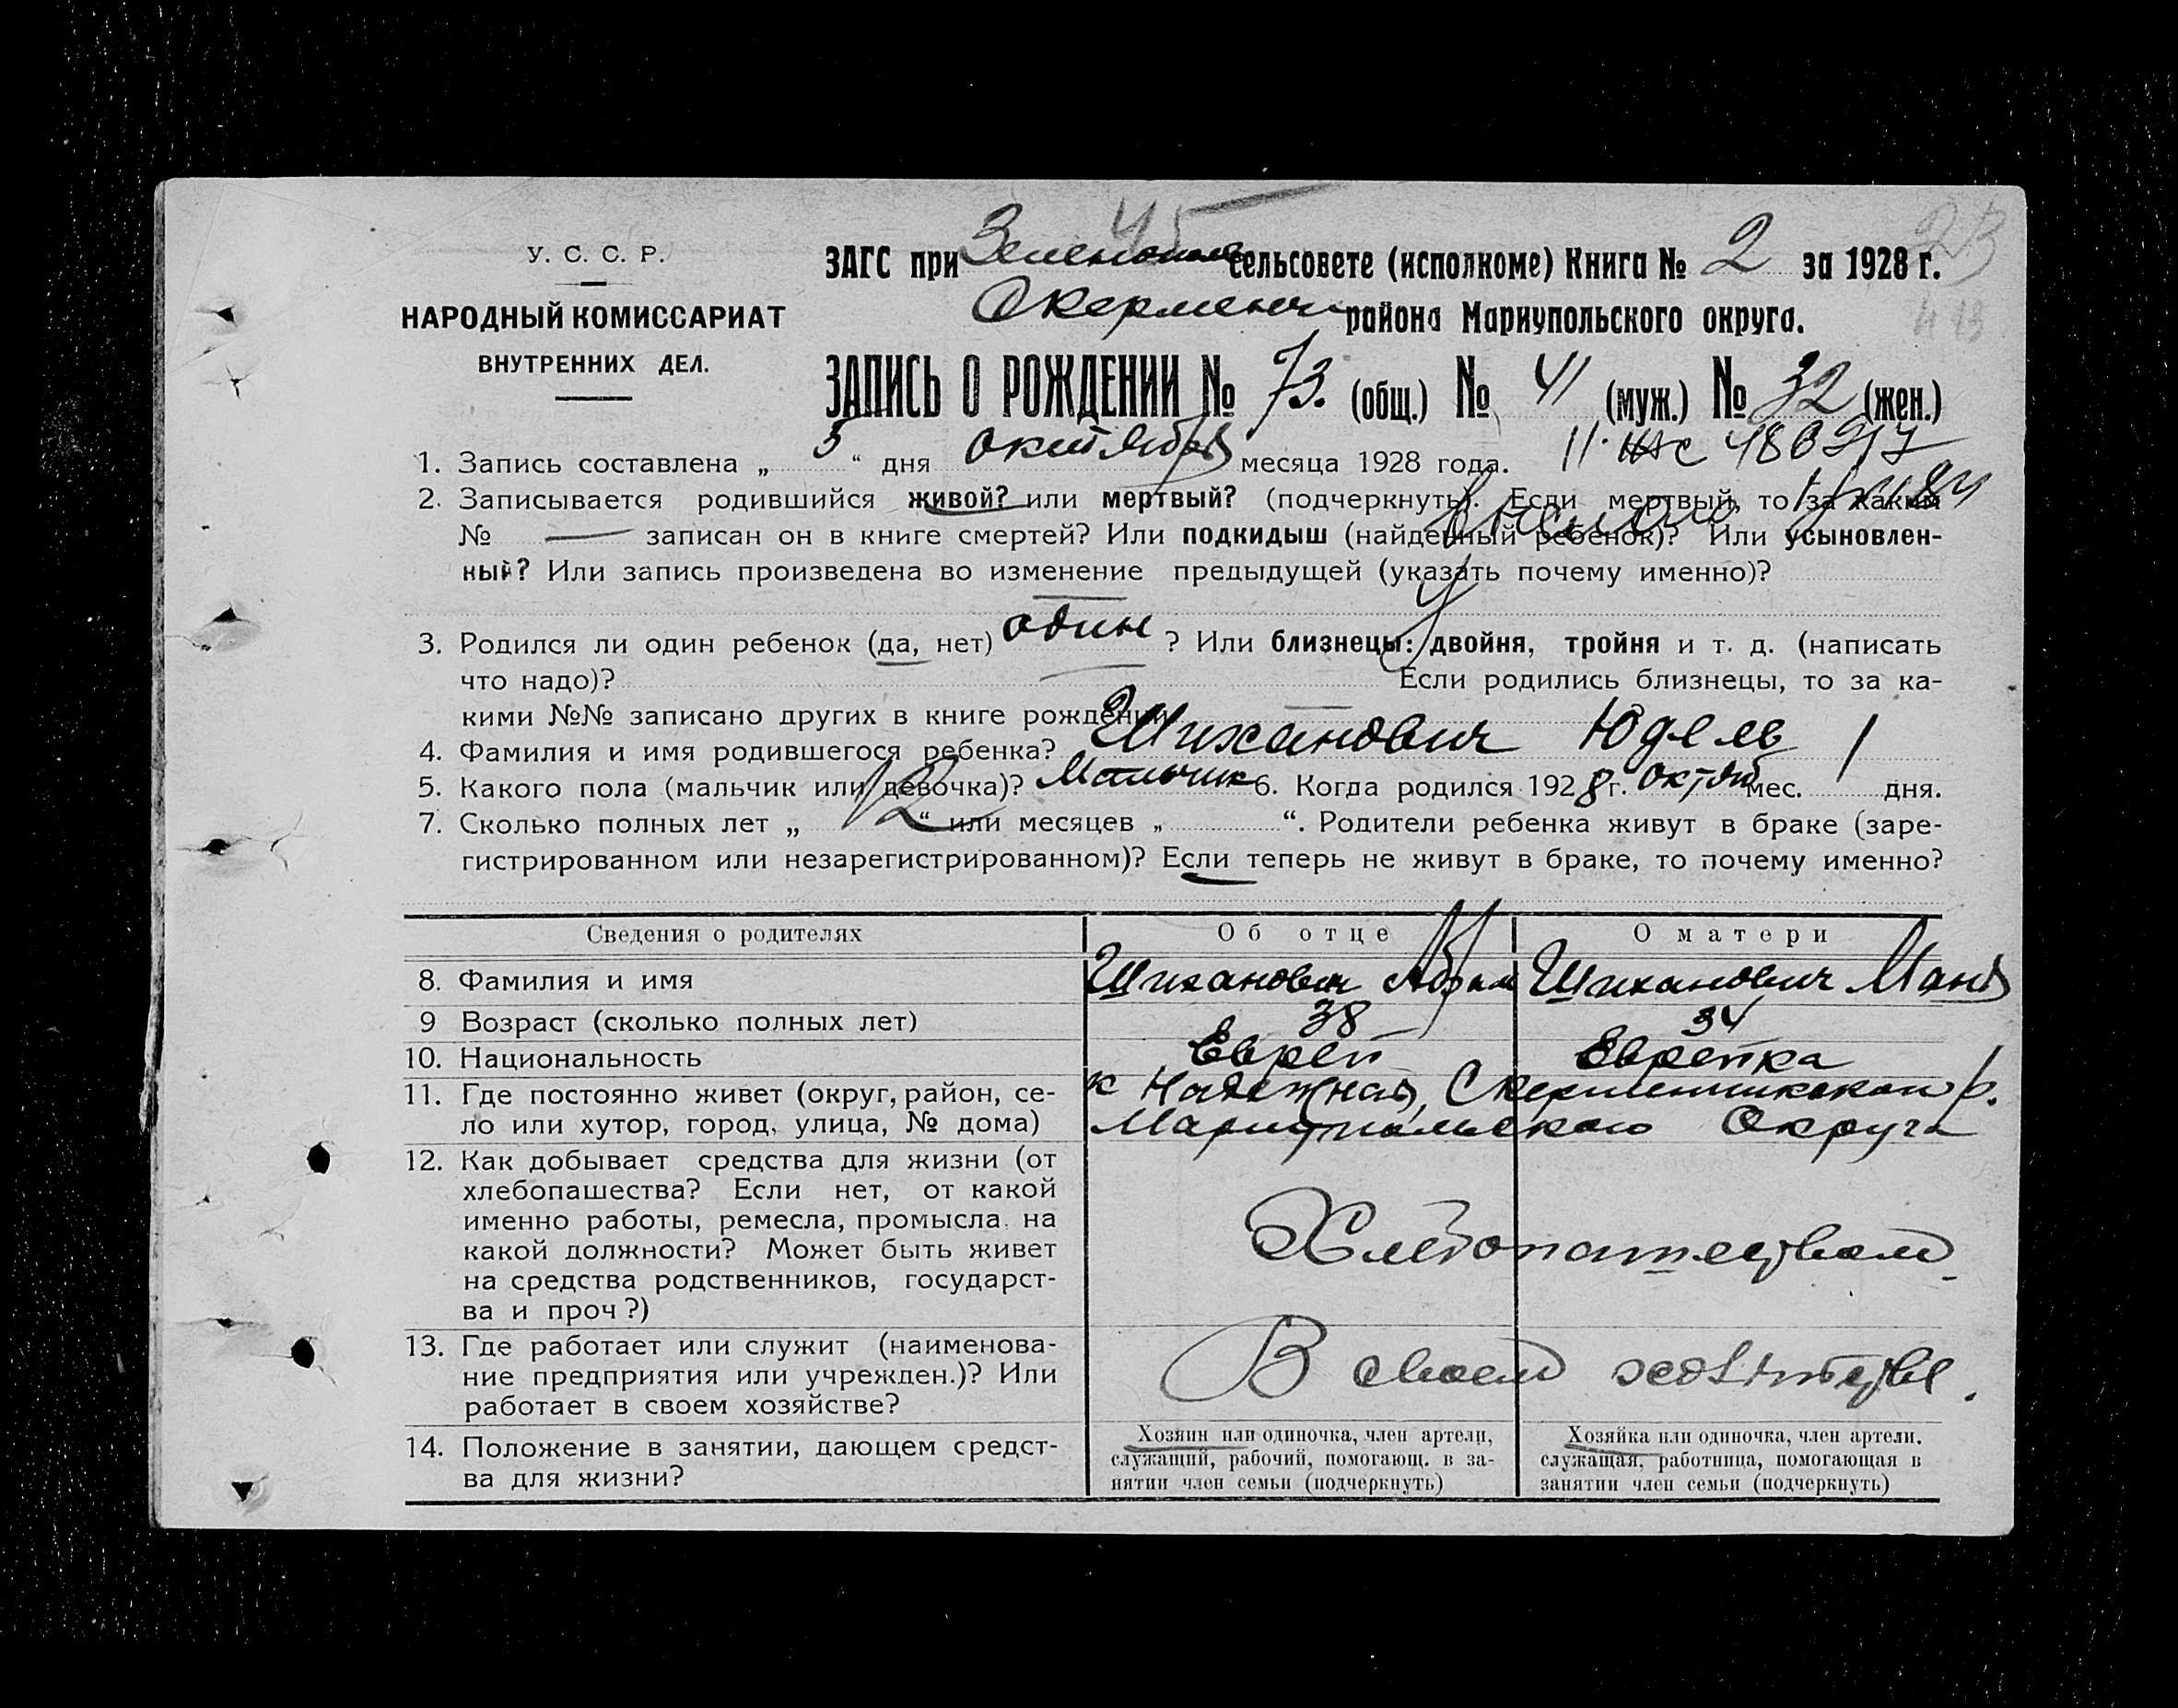 45
23
У. С. С. Р.
НАРОДНЫЙ КОМИССАРИАТ
ВНУТРЕННИХ ДЕЛ.
ЗАГС при сельсовете (исполкоме) Книга № 2 за 1928 г.
района Мариупольского округа.
ЗАПИСЬ О РОЖДЕНИИ № 73. (общ.) № 41 (муж.) № 32 (жен.)
1. Запись составлена „ 5 “ дня октября месяца 1928 года.
2. Записывается родившийся живой? или мертвый? (подчеркнуть). Если мертвый, то за каким
№ — записан он в книге смертей? Или подкидыш (найденный ребенок)? Или усыновлен-
ный? Или запись произведена во изменение предыдущей (указать почему именно)?
3. Родился ли один ребенок (да, нет) один ? Или близнецы: двойня, тройня и т. д. (написать
что надо)? Если родились близнецы, то за ка-
кими №№ записано других в книге рождений
4. Фамилия и имя родившегося ребенка? Шиханович Юдель
5. Какого пола (мальчик или девочка)? Мальчик 6. Когда родился 1928 г. Октяб мес. 1 дня.
7. Сколько полных лет „ 12 “ или месяцев „ “. Родители ребенка живут в браке (заре-
гистрированном или незарегистрированном)? Если теперь не живут в браке, то почему именно?
Сведения о родителях Об отце О матери
8. Фамилия и имя Шиханович Абрам Шиханович Маня
9 Возраст (сколько полных лет) 38 34
10. Национальность Еврей Еврейка
11. Где постоянно живет (округ, район, се-
ло или хутор, город, улица, № дома)
к Надежная, р.
Мариупольского Округа
12. Как добывает средства для жизни (от
хлебопашества? Если нет, от какой
именно работы, ремесла, промысла на
какой должности? Может быть живет
на средства родственников, государст-
ва и проч?)
Хлебопашеством
13. Где работает или служит (наименова-
ние предприятия или учрежден.)? Или
работает в своем хозяйстве?
В своем хозяйстве.
14. Положение в занятии, дающем средст-
ва для жизни?
Хозяин или одиночка, член артели,
служащий, рабочий, помогающ. в за-
нятии член семьи (подчеркнуть)
Хозяйка или одиночка, член артели.
служащая, работница, помогающая в
занятии член семьи (подчеркнуть)